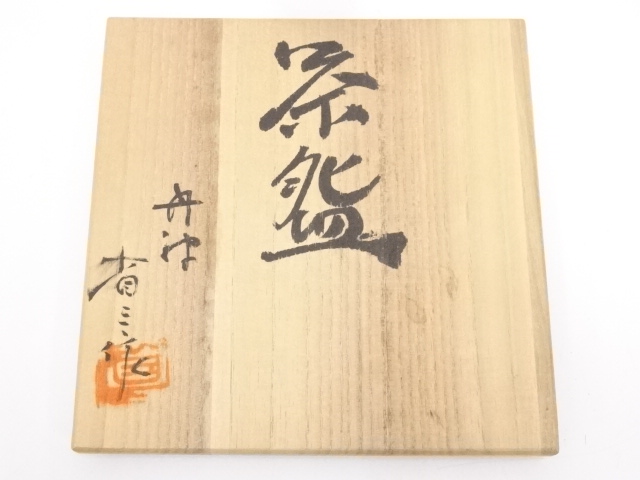 茶盌
丹波
省三作